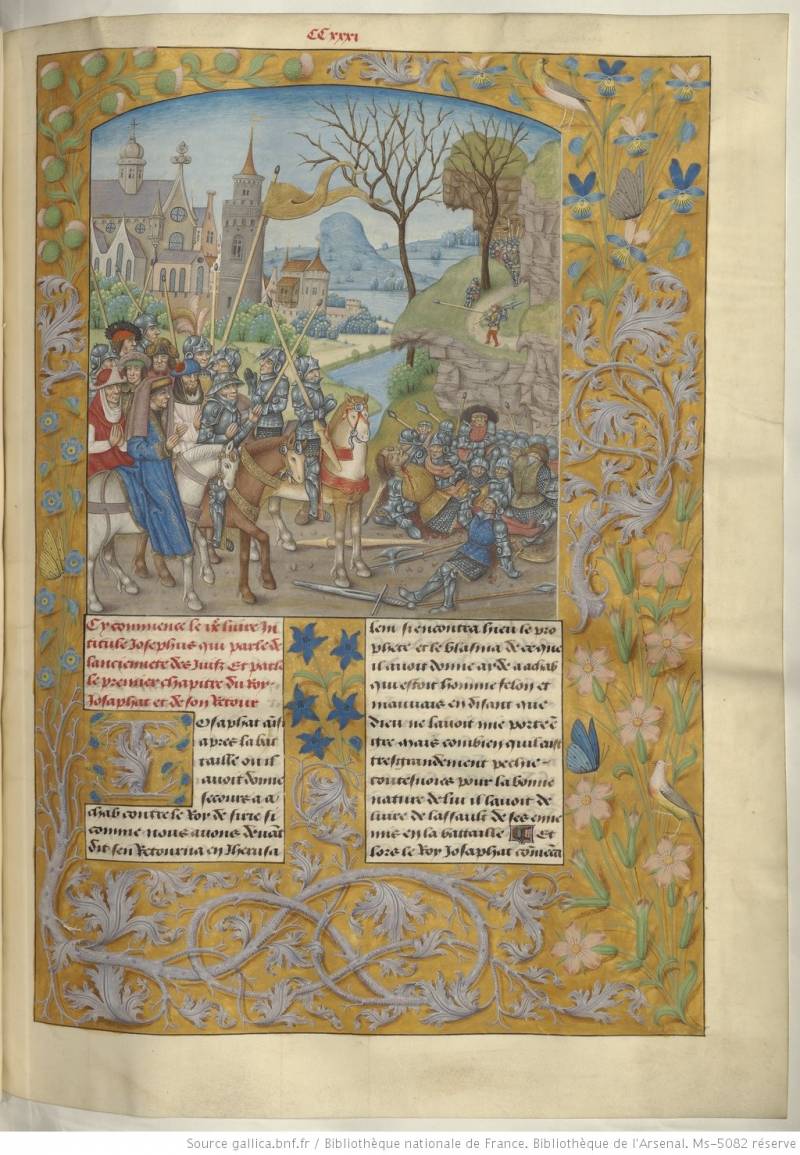 CCxxxi
Cy commence le ixe liure In
titule Josephus qui parle de
lanciennete des Juifz Et parle
le premier chapitre du Roy
Josaphat et de son Retour
Iosaphat ainsi
apres la bat
taille ou il
auoit donne
secours a a
chab contre le Roy de sirie si
comme nous auons deuant
dit sen Retourna en Iherusa
lem si encontra hieu le pro
phete et le blasma de ce que
il auoit donne ayde a achab
qui estoit homme felon et
mauuais en disant que
dieu ne lauoit mie porte
gre Mais combien quil eust
tresgrandement peche
toutesuoies pour la bonne
nature de lui il lauoit de
liure de lassault de ses enne
mis en la battaille Et
lors le Roy Josaphat
Source gallica.bnf.fr / Bibliothèque nationale de France. Bibliothèque de l'Arsenal. Ms-5082 réserve